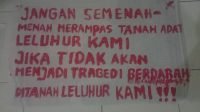 JANGAN SEMENAH-
MENAH MERAMPAS TANAH ADAT
LELUHUR KAMI
JIKA TIDAK AKAN
MENJADI TRAGEDI BERDARAH
DITANAH LELUHUR KAMI!!!